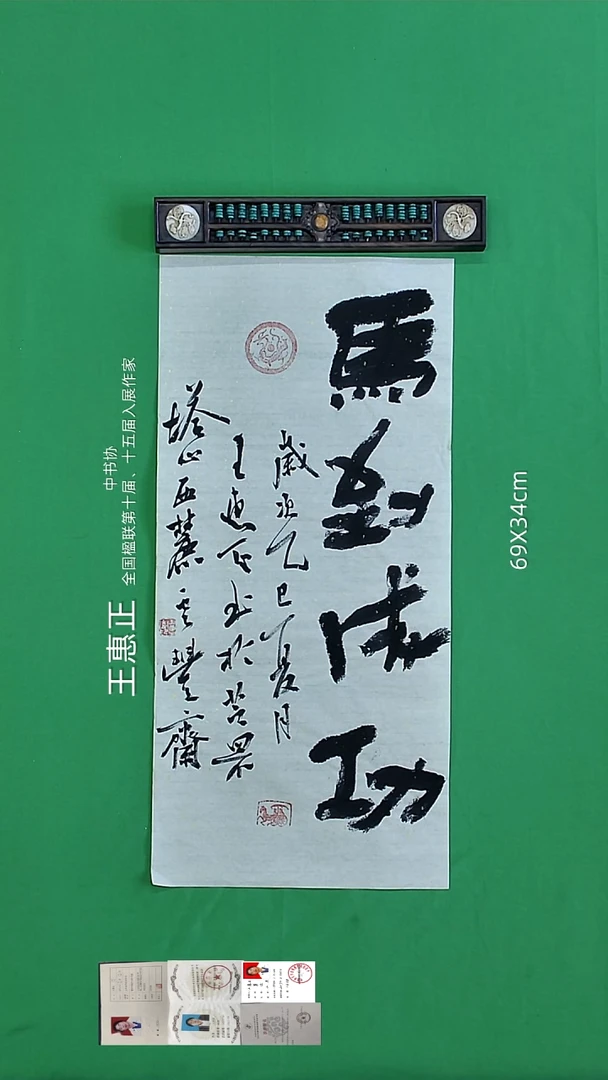 馬到成功
歲乙巳夏月
王惠正書於
塔山西麓齋
王惠正
中书协
全国楹联第十届、十五届入展作家
69X34cm